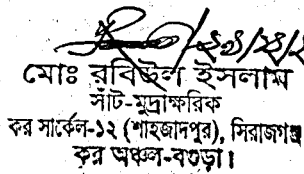 মোঃ রবিউল ইসলাম
সাঁট-মুদ্রাক্ষরিক
কর সার্কেল-১২ (শাহজাদপুর), সিরাজগঞ্জ
কর অঞ্চল-বগুড়া।